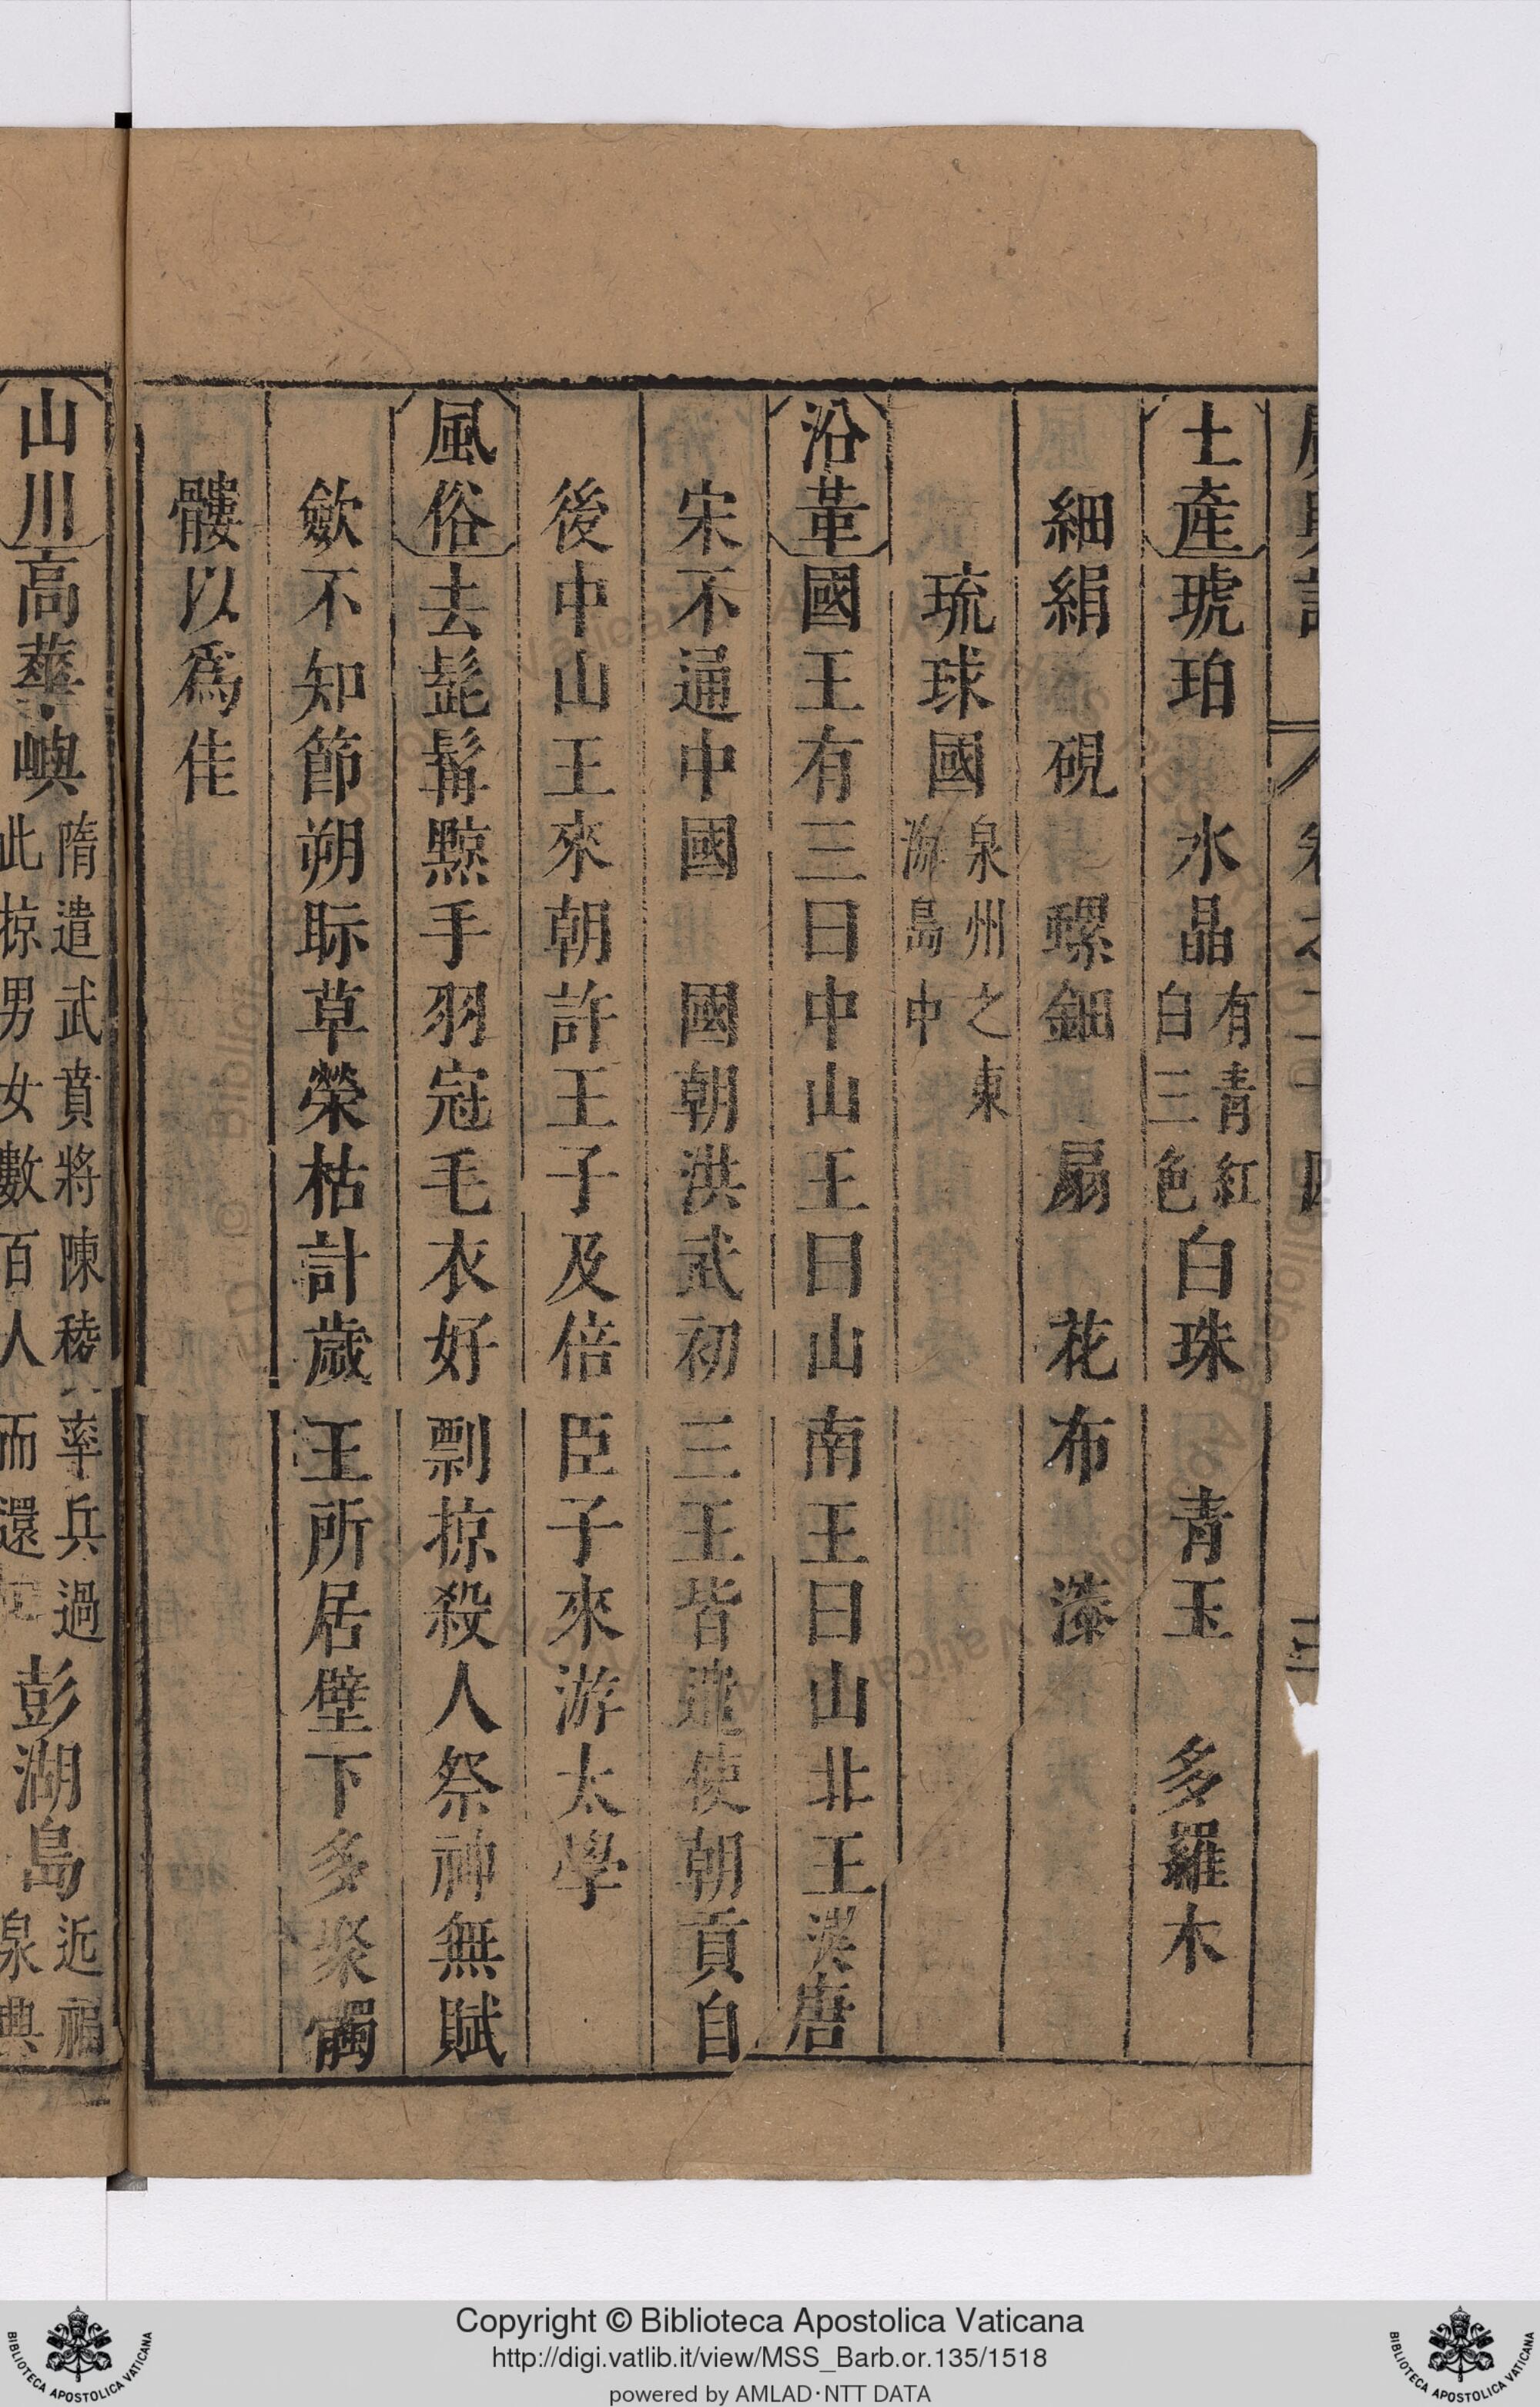 土產琥珀 水晶有青紅白三色白珠 青玉 多羅木
細絹 硯 螺鈿 扇 花布 漆
琉球國泉州之東海島中
沿革國王有三曰中山王曰山南王曰山北王漢唐
宋不通中國 國朝洪武初三王皆遣使朝貢自
後中山王來朝許王子及倍臣子來游太學
風俗去髭髯黥手羽冠毛衣好剽掠殺人祭神無賦
歛不知節朔眎草榮枯計歲王所居壁下多聚髑
髏以爲佳
山川高華嶼隋遣武賁將陳稜率兵過
此掠男女數百人而還彭湖島近福
泉興
Copyright © Biblioteca Apostolica Vaticana
http://digi.vatlib.it/view/MSS_Barb.or.135/1518
powered by AMLAD·NTT DATA
BIBLIOTECA APOSTOLICA VATICANA
BIBLIOTECA APOSTOLICA VATICANA